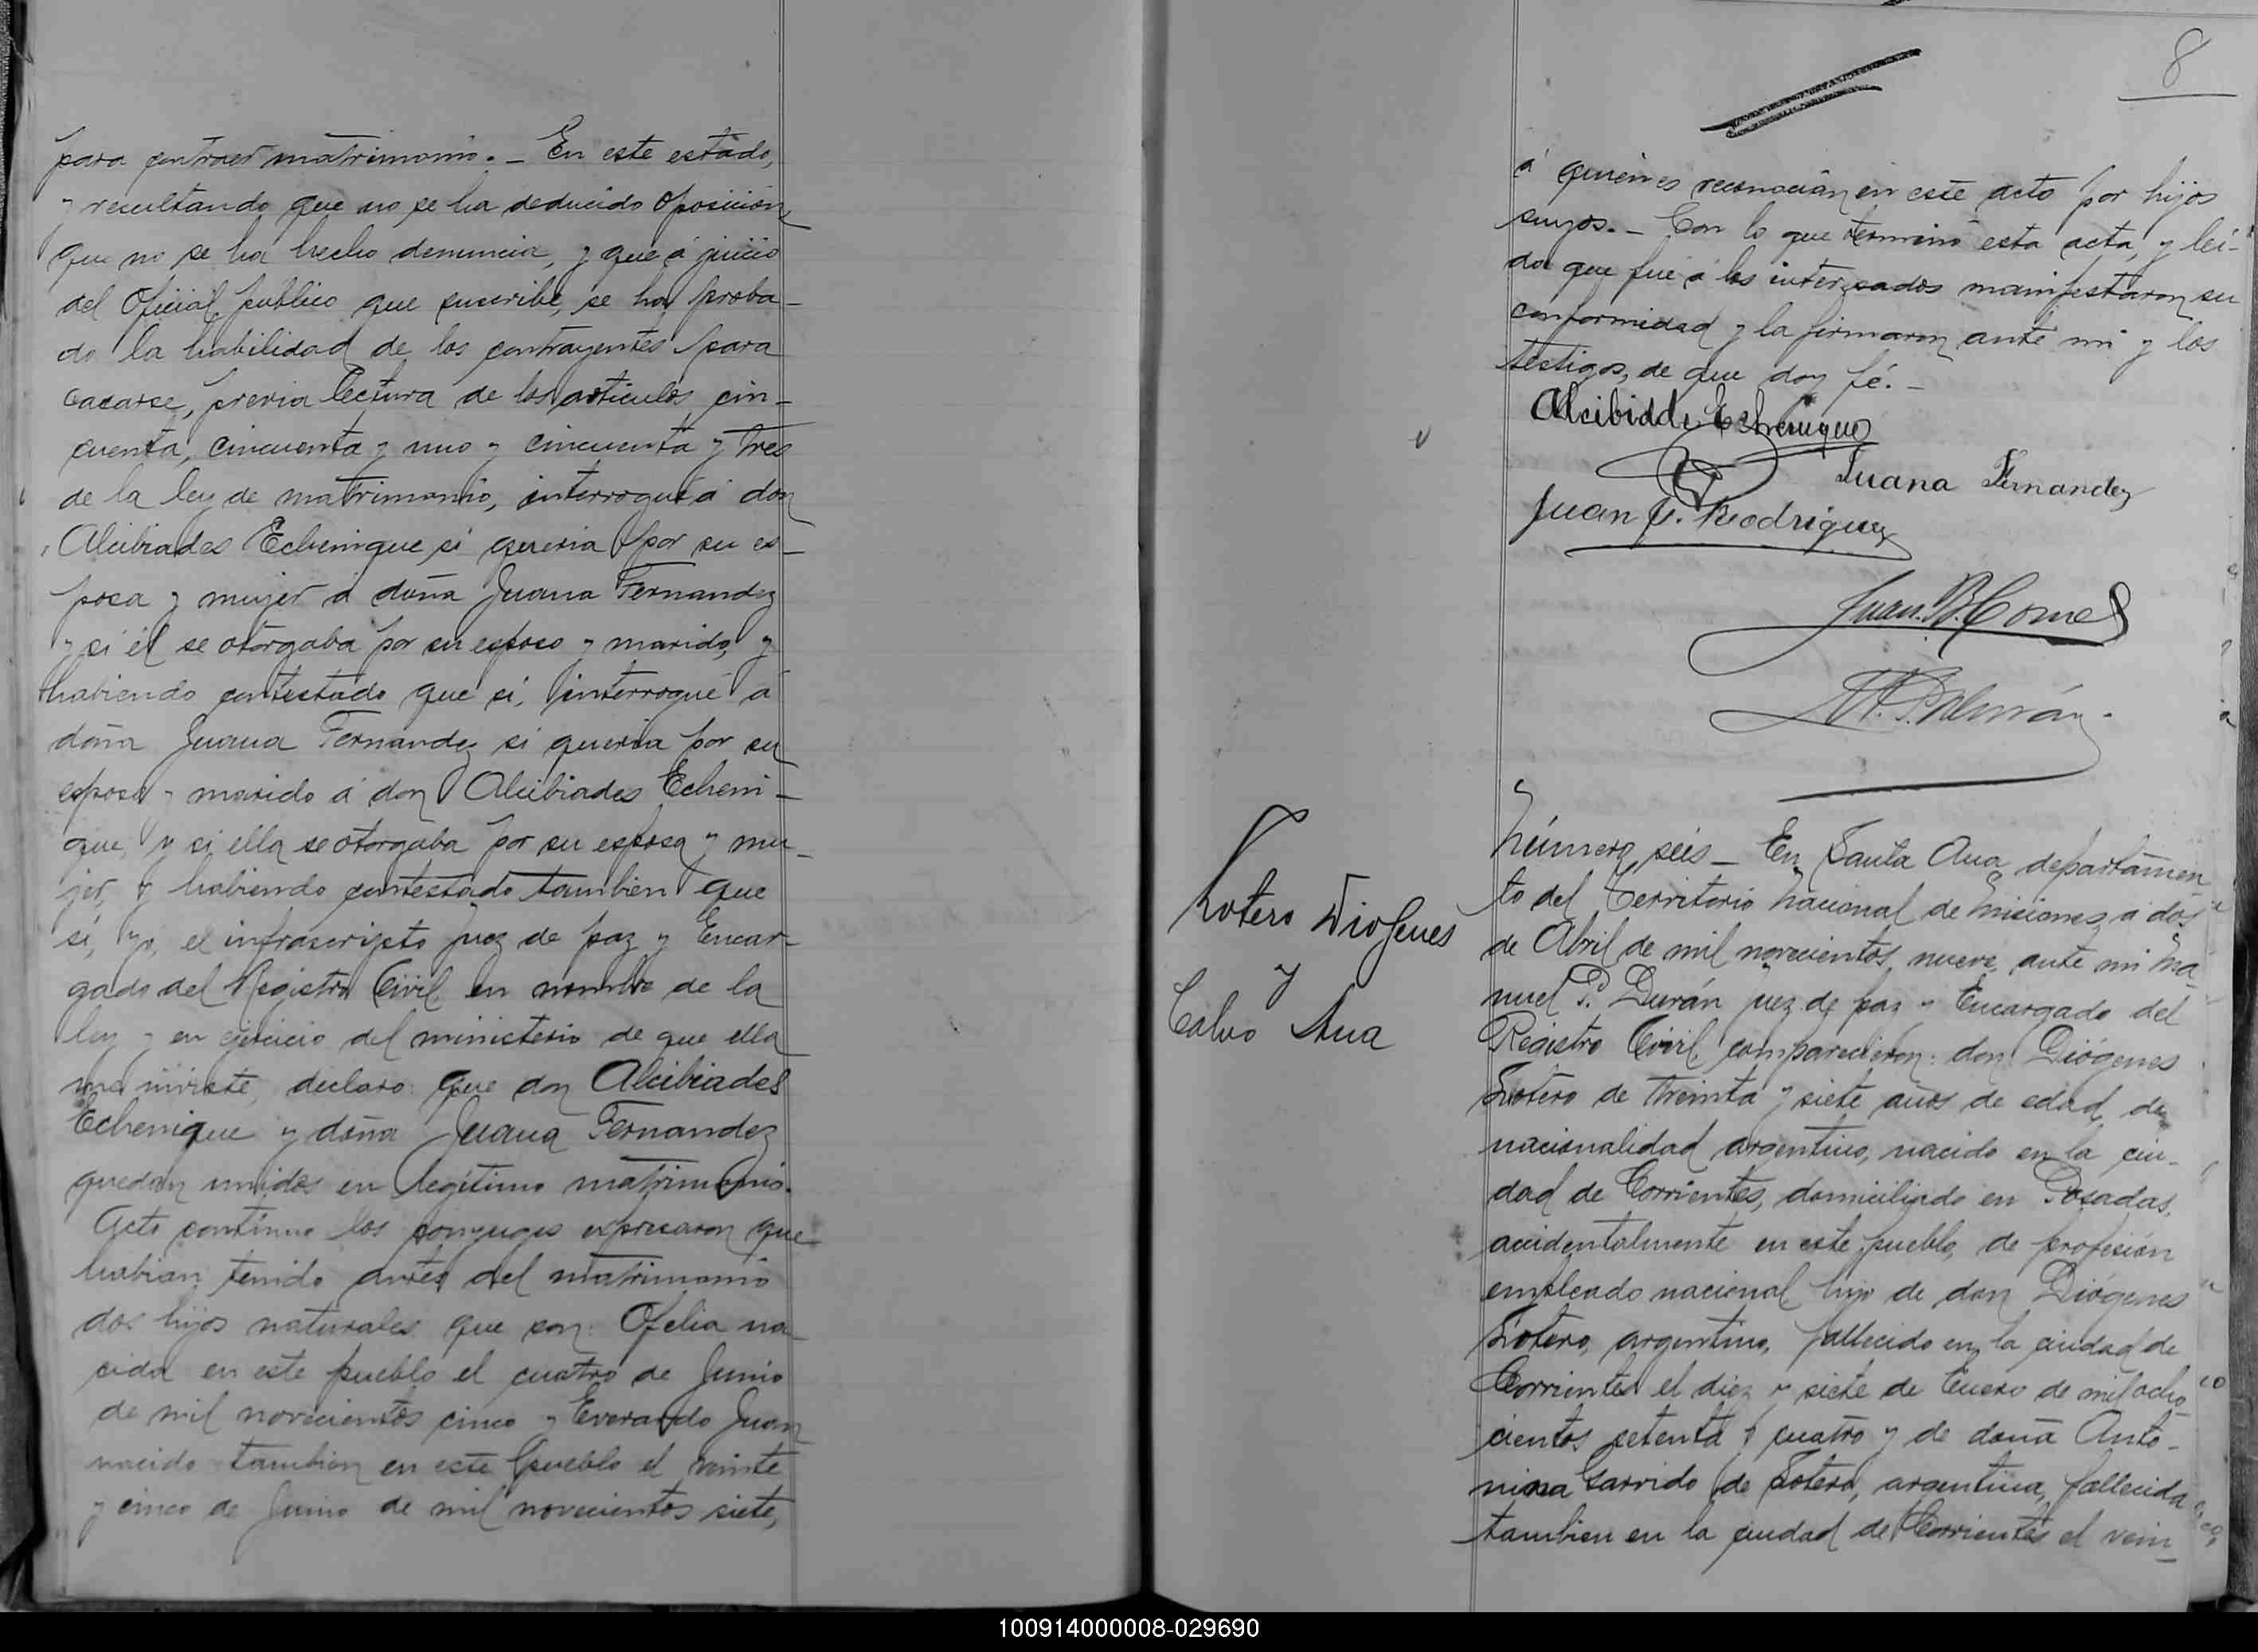 para contraer matrimonio. — En este estado,
y resultando que no se ha deducido oposición
que no se ha hecho denuncia, y que á juicio
del Oficial publico que suscribe, se ha proba-
do la habilidad de los contrayentes para
casarse, previa lectura de los articulos cin-
cuenta, cincuenta y uno y cincuenta y tres
de la ley de matrimonio, interrogué á don
Alcibiades Echenique si queria por su es-
posa y mujer á doña Juana Fernandez
y si él se otorgaba por su esposo y marido, y
habiendo contestado que si, interrogué á
doña Juana Fernandez si queria por su
esposo y marido á don Alcibiades Echeni-
que, y si ella se otorgaba por su esposa y mu-
jer, y habiendo contestado tambien que
si, yo, el infrascripto Juez de paz y Encar-
gado del Registro Civil en nombre de la
ley y en ejercicio del ministerio de que ella
me inviste, declaro: que don Alcibiades
Echenique y doña Juana Fernandez
quedan unidos en legítimo matrimonio.
Acto contínuo los conyuges expresaron que
habian tenido antes del matrimonio
dos hijos naturales que son: Ofelia na-
cida en este pueblo el cuatro de Junio
de mil novecientos cinco y Everardo Juan
nacido tambien en este pueblo el veinte
y cinco de Junio de mil novecientos siete,
8
á quienes reconocian en este acto por hijos
suyos. — Con lo que terminó esta acta, y lei-
da que fué á los interesados manifestaron su
conformidad y la firmaron ante mi y los
testigos, de que doy fé. —
Alcibiade Echenique
Juana Fernandez
Juan P. Rodriguez
Juan B. Comes
M. P. Durán
Sotero Diogenes
y
Calvo Ana
Número seis — En Santa Ana departamen
to del Territorio Nacional de Misiones, á dos
de Abril de mil novecientos nueve, ante mi Ma-
nuel P. Durán juez de paz y Encargado del
Registro Civil, comparecieron: don Diógenes
Sotero de treinta y siete años de edad, de
nacionalidad argentino, nacido en la ciu-
dad de Corrientes, domiciliado en Posadas,
accidentalmente en este pueblo, de profesión
empleado nacional hijo de don Diógenes
Sotero, argentino, fallecido en la ciudad de
Corrientes el diez y siete de Enero de mil ocho
cientos setenta y cuatro y de doña Anto-
nina Garrido de Sotero, argentina, fallecida
tambien en la ciudad de Corrientes el vein-
100914000008-029690